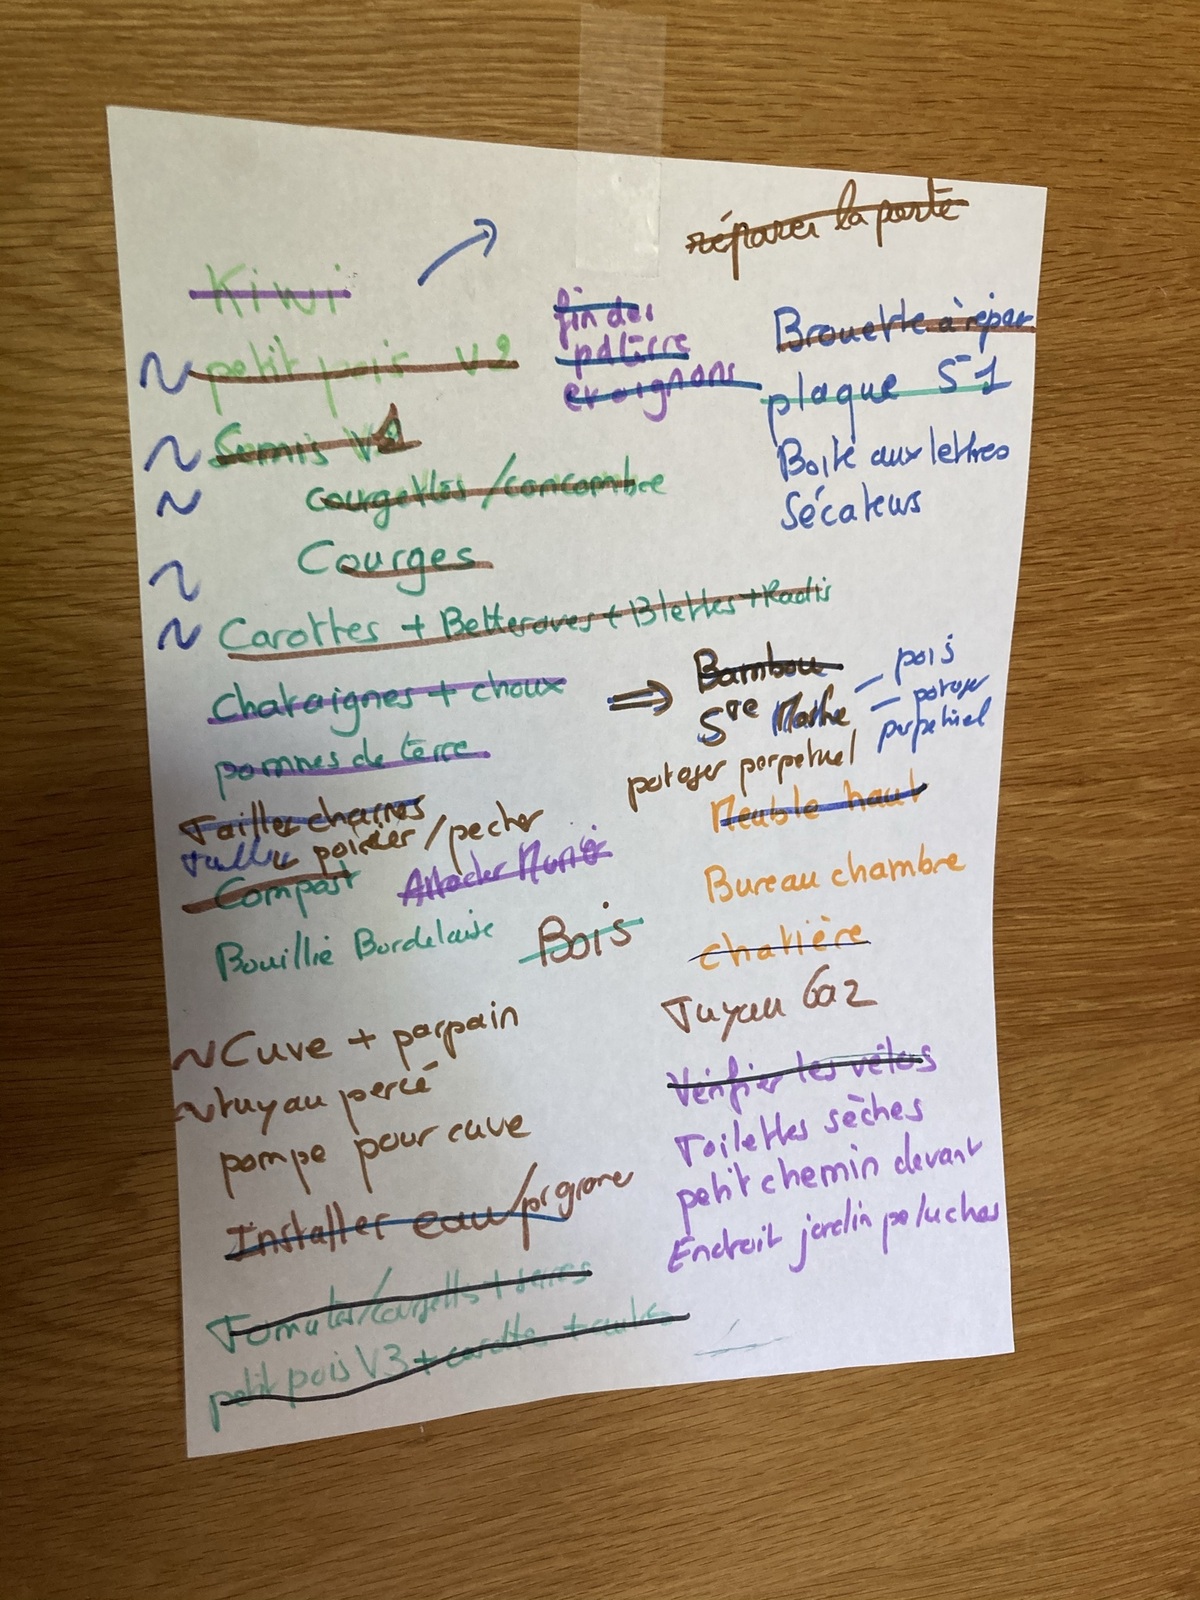 réparer la porte
Kiwi
fin des
pdterre
et oignons
Brouette à répar
petit pois V2
plaque S-1
Semis V1
Boite aux lettres
courgettes/concombre
Sécateurs
Courges
Carottes + Betteraves + Blettes + Radis
Chataignes + choux
Bambou
Ste Marthe
pois
potager
perpetuel
pommes de terre
potager perpetuel
Tailler
Meuble haut
Tailler poirier/pecher
Compost
Attacher
Bureau chambre
Bouillie Bordelaise
Bois
chatière
Cuve + parpain
Tuyau Gaz
tuyau percé
Vérifier les vélos
pompe pour cuve
Toilettes sèches
petit chemin devant
Installer eau/
Endroit jardin peluches
Tomates/courgettes +
petit pois V3 + carotte +